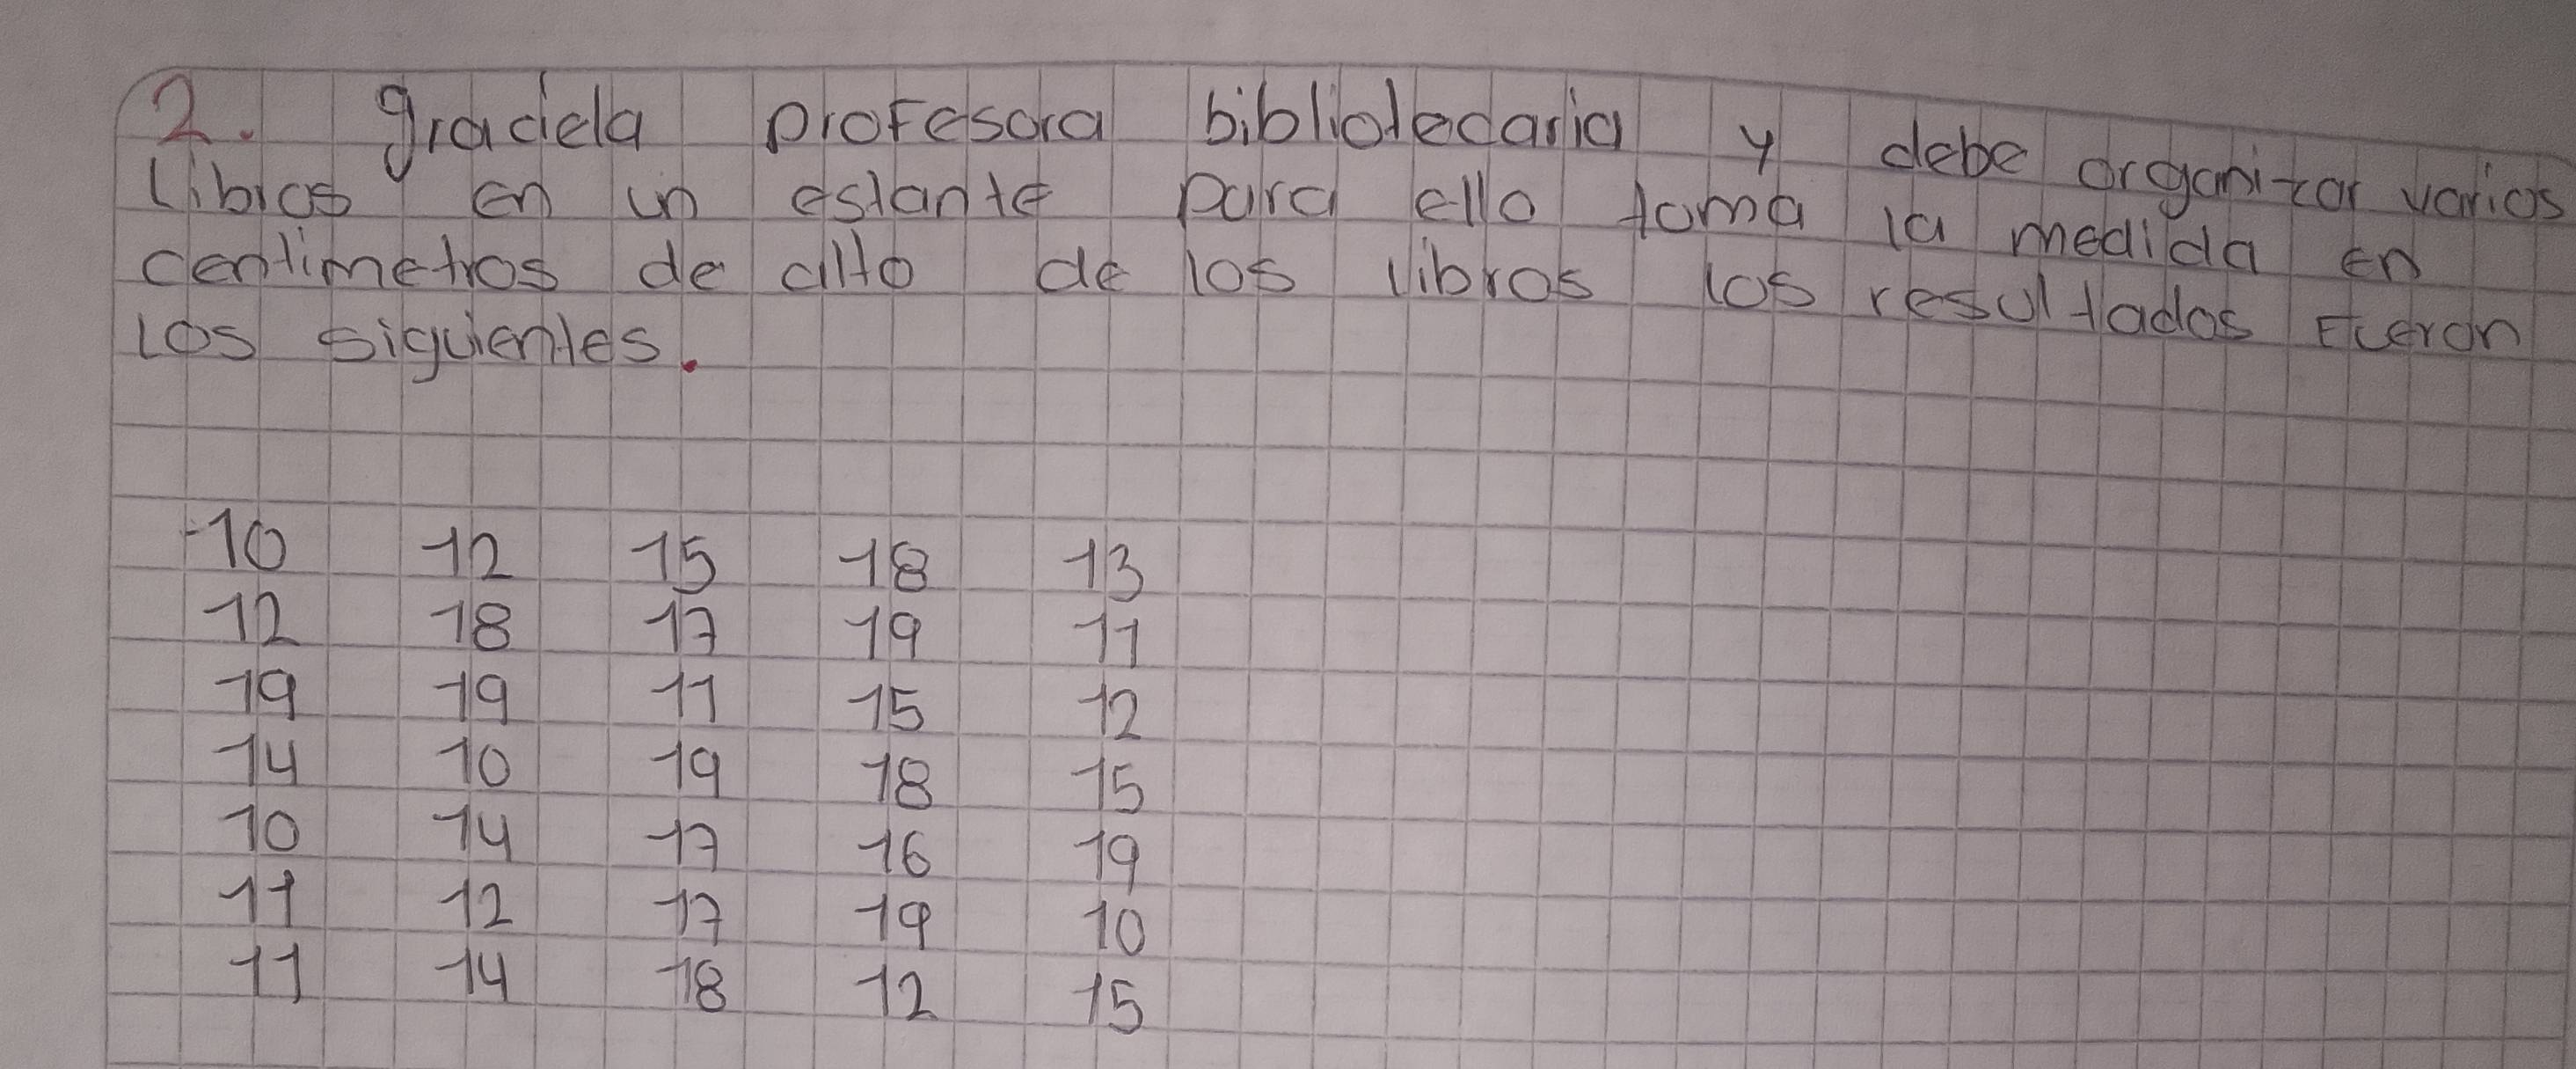 2. graciela profesora bibliotecaria y debe organizar varios
libros en un estante para ello toma la medida en
centimetros de alto de los libros los resultados fueron
los siguientes.
10 12 15 18 13
12 18 17 19 11
19 19 11 15 12
14 10 19 18 15
10 14 17 16 19
11 12 17 19 10
11 14 18 12 15